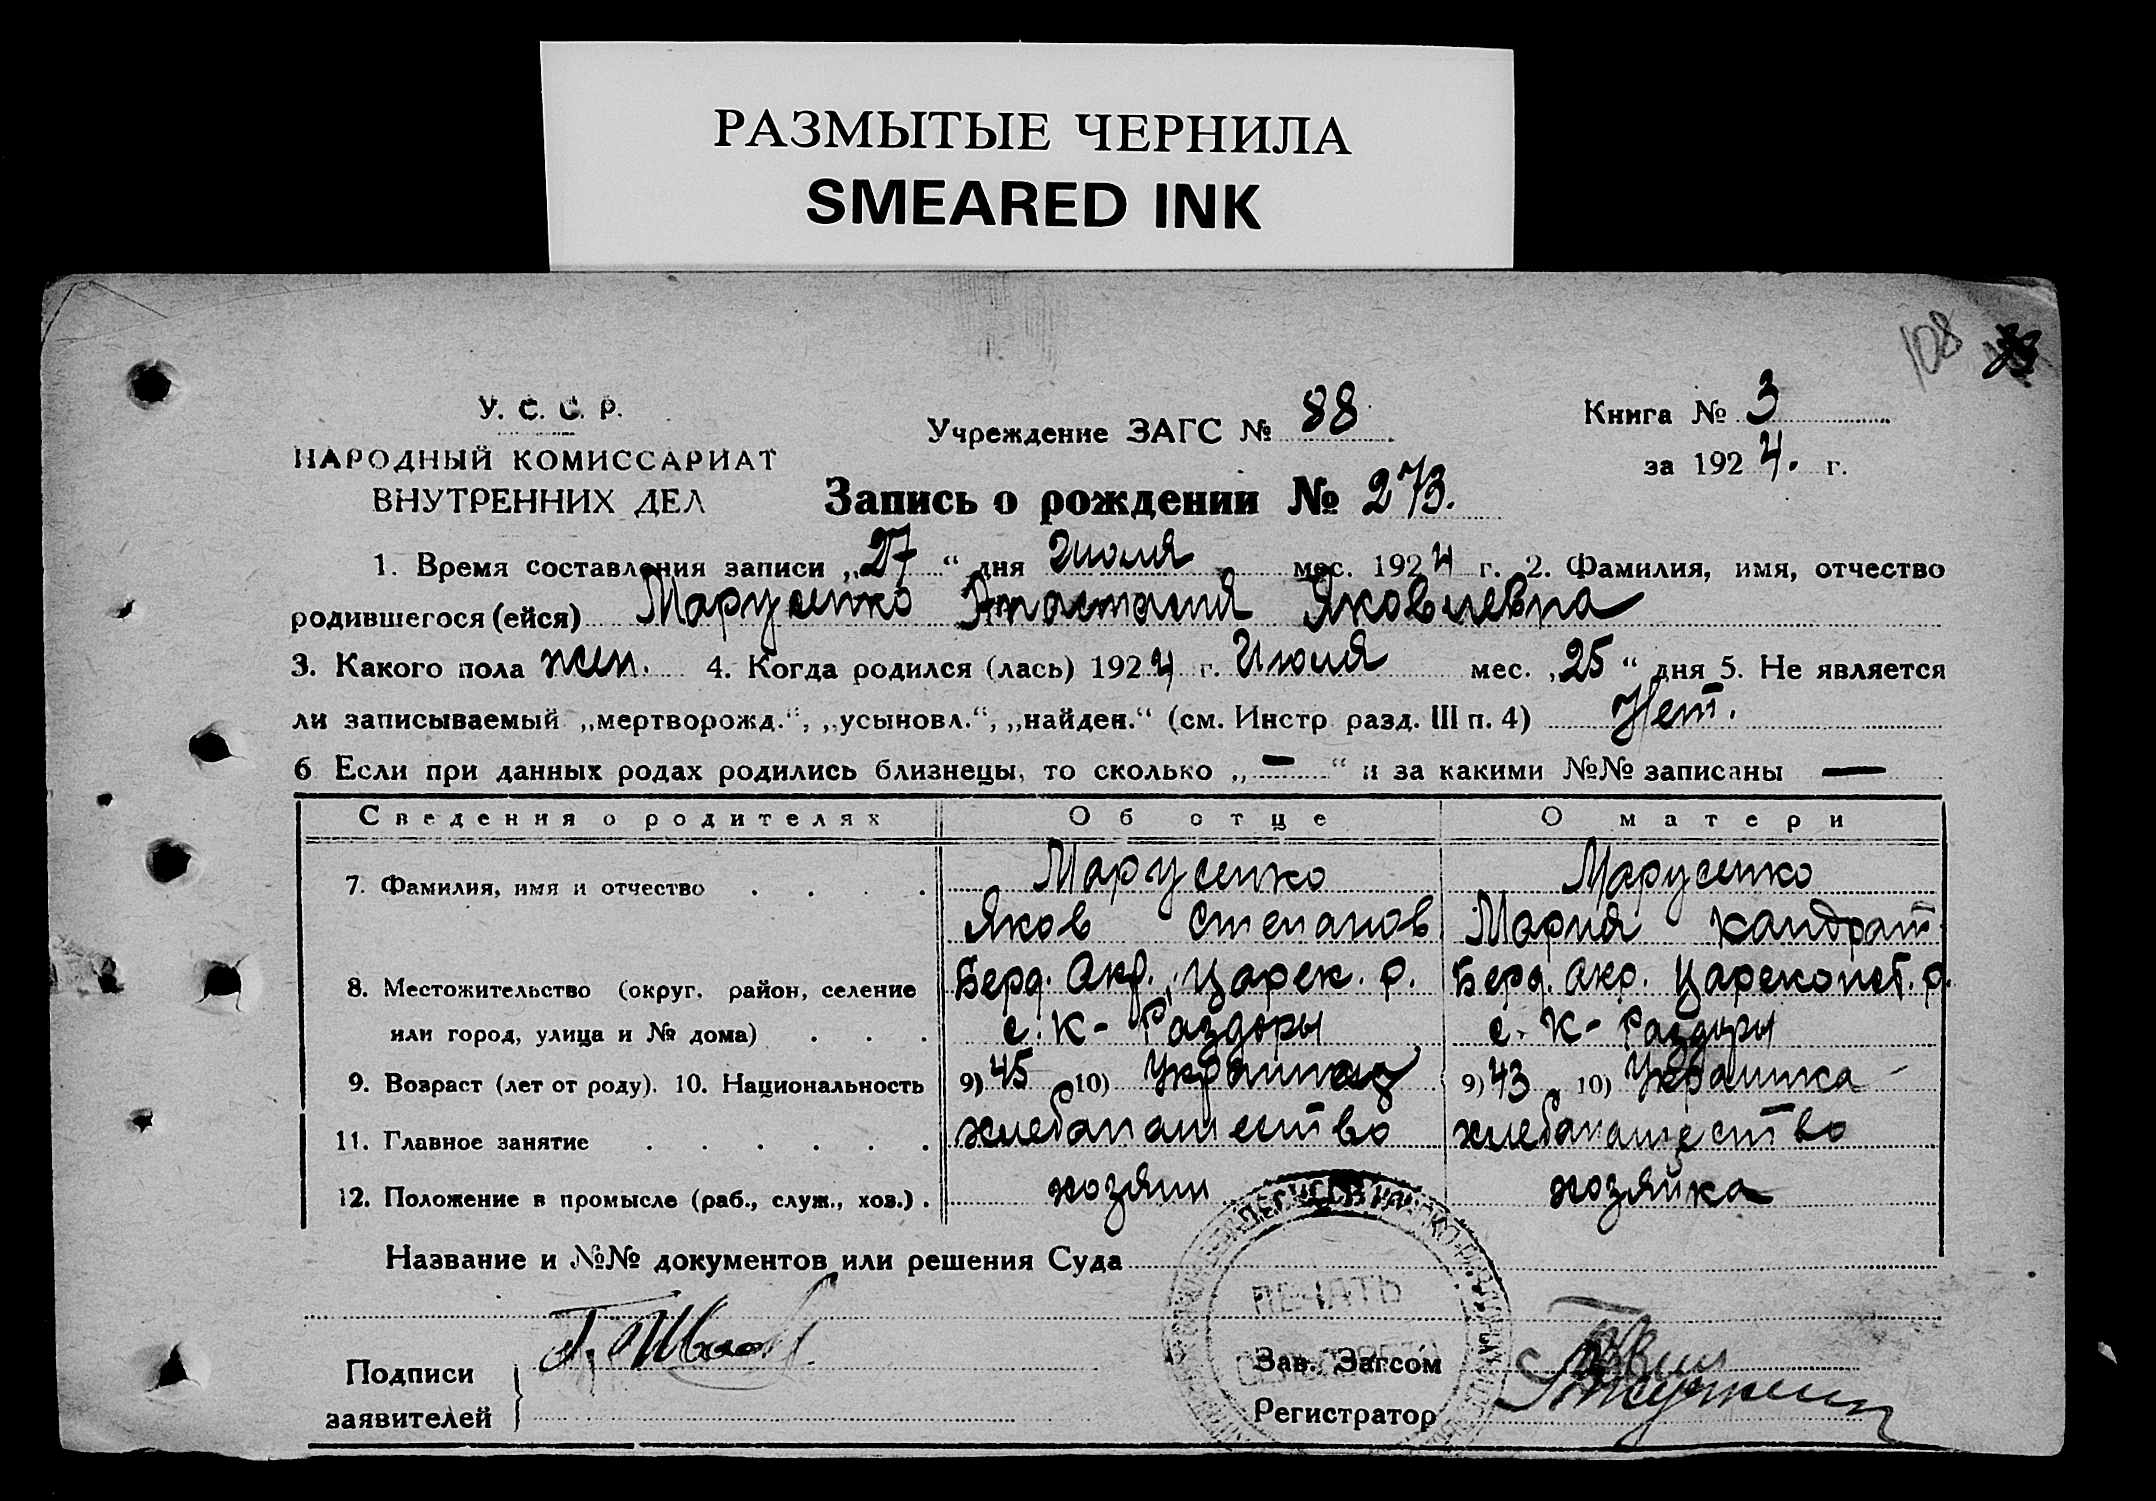 РАЗМЫТЫЕ ЧЕРНИЛА
SMEARED INK
108
У. С. С. Р.
НАРОДНЫЙ КОМИССАРИАТ
ВНУТРЕННИХ ДЕЛ
Учреждение ЗАГС № 88
Книга № 3
за 1924. г.
Запись о рождении № 273.
1. Время составления записи „27“ дня Июля мес. 1924 г. 2. Фамилия, имя, отчество
родившегося (ейся) Марусенко Анастасия Яковлевна
3. Какого пола жен. 4. Когда родился (лась) 1924 г. Июля мес. „25“ дня 5. Не является
ли записываемый „мертворожд.“, „усыновл.“, „найден.“ (см. Инстр разд. III п. 4) Нет.
6 Если при данных родах родились близнецы, то сколько „—“ и за какими №№ записаны —
Сведения о родителях Об отце О матери
7. Фамилия, имя и отчество . . . . Марусенко Марусенко
Яков Степанов Мария Кандрат
8. Местожительство (округ, район, селение Берд. Окр. Царек. р. Берд. Окр. Цареконст. р.
или город, улица и № дома) . . . с. К- Раздоры с. К- Раздоры
9. Возраст (лет от роду). 10. Национальность 9) 45 10) Украинец 9) 43 10) Украинка
11. Главное занятие . . . . . . хлебапашество хлебапашество
12. Положение в промысле (раб., служ., хоз.) . хозяин хозяйка
Название и №№ документов или решения Суда
ПЕЧАТЬ
Подписи
заявителей
Зав. Загсом
Регистратор